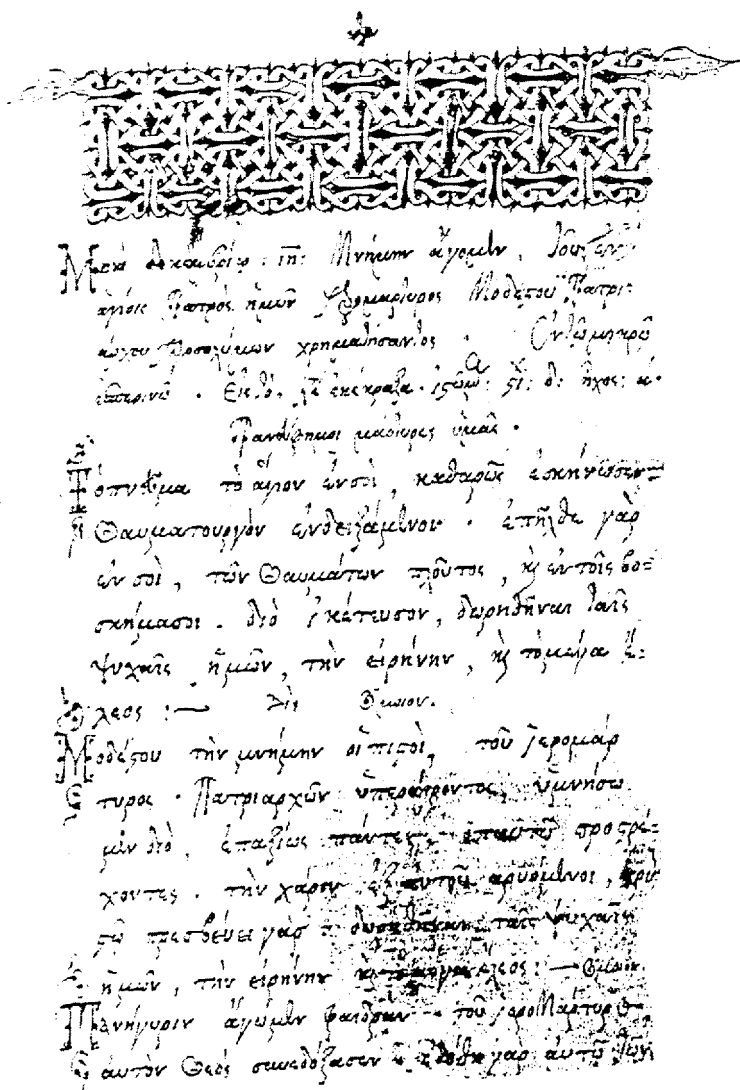 Μηνὶ δεκεμβρίῳ: ιη: Μνήμην ἄγομεν, τοῦ ἐν
ἁγίοις Πατρὸς ἡμῶν Ἱερομάρτυρος Μοδέστου Πατρι
άρχου Ἱεροσολύμων χρηματίσαντος. Ἐν τῷ μικρῷ
ἑσπερινῷ. Εἰς τὸ, κε ἐκέκραξα. ἦχος: α.
Πανεύφημοι μάρτυρες ὑμᾶς.
Τὸ πνεῦμα τὸ ἅγιον ἐν σοὶ, καθαρῶς ἐσκήνωσεν
Θαυματουργὸν ἐνδειξάμενον. ἐπῆλθε γὰρ
ἐν σοὶ, τῶν Θαυμάτων πλοῦτος, κỳ ἐν τοῖς βο=
σκήμασι. διὸ ἱκέτευσον, δωρηθῆναι ταῖς
ψυχαῖς ἡμῶν, τὴν εἰρήνην, κỳ τὸ μέγα ἔ=
λεος :— Δὶς Ὅμοιον.
Μοδέστου τὴν μνήμην οἱ πιστοὶ, τοῦ Ἱερομάρ
τυρος. Πατριαρχῶν ὑπεραίροντος, ὑμνήσω
μεν διὸ, ἐπαξίως πάντες προστρέ=
χοντες. τὴν χάριν ἐξ αὐτοῦ ἀρυόμενοι, Χρι
στῷ πρεσβεύει γὰρ δωρηθῆναι ταῖς ψυχαῖς
ἡμῶν, τὴν εἰρήνην κỳ τὸ μέγα ἔλεος :— Ὅμοιον.
Πανήγυριν ἄγωμεν φαιδρὰν τοῦ ἱερομάρτυρος,
αὐτὸν Θεὸς συνεδόξασεν γὰρ αὐτῷ